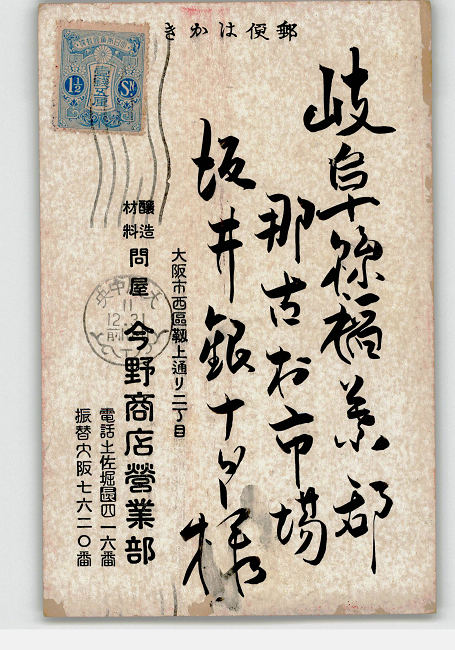 郵便はかき
岐阜縣稲葉郡
那古村市場
坂井銀十郎様
大阪市西區靱上通リ二丁目
醸造
材料
問屋 今野商店營業部
電話土佐堀園四一六番
振替大阪七六二〇番
1½ Sn.
11
12.31
前